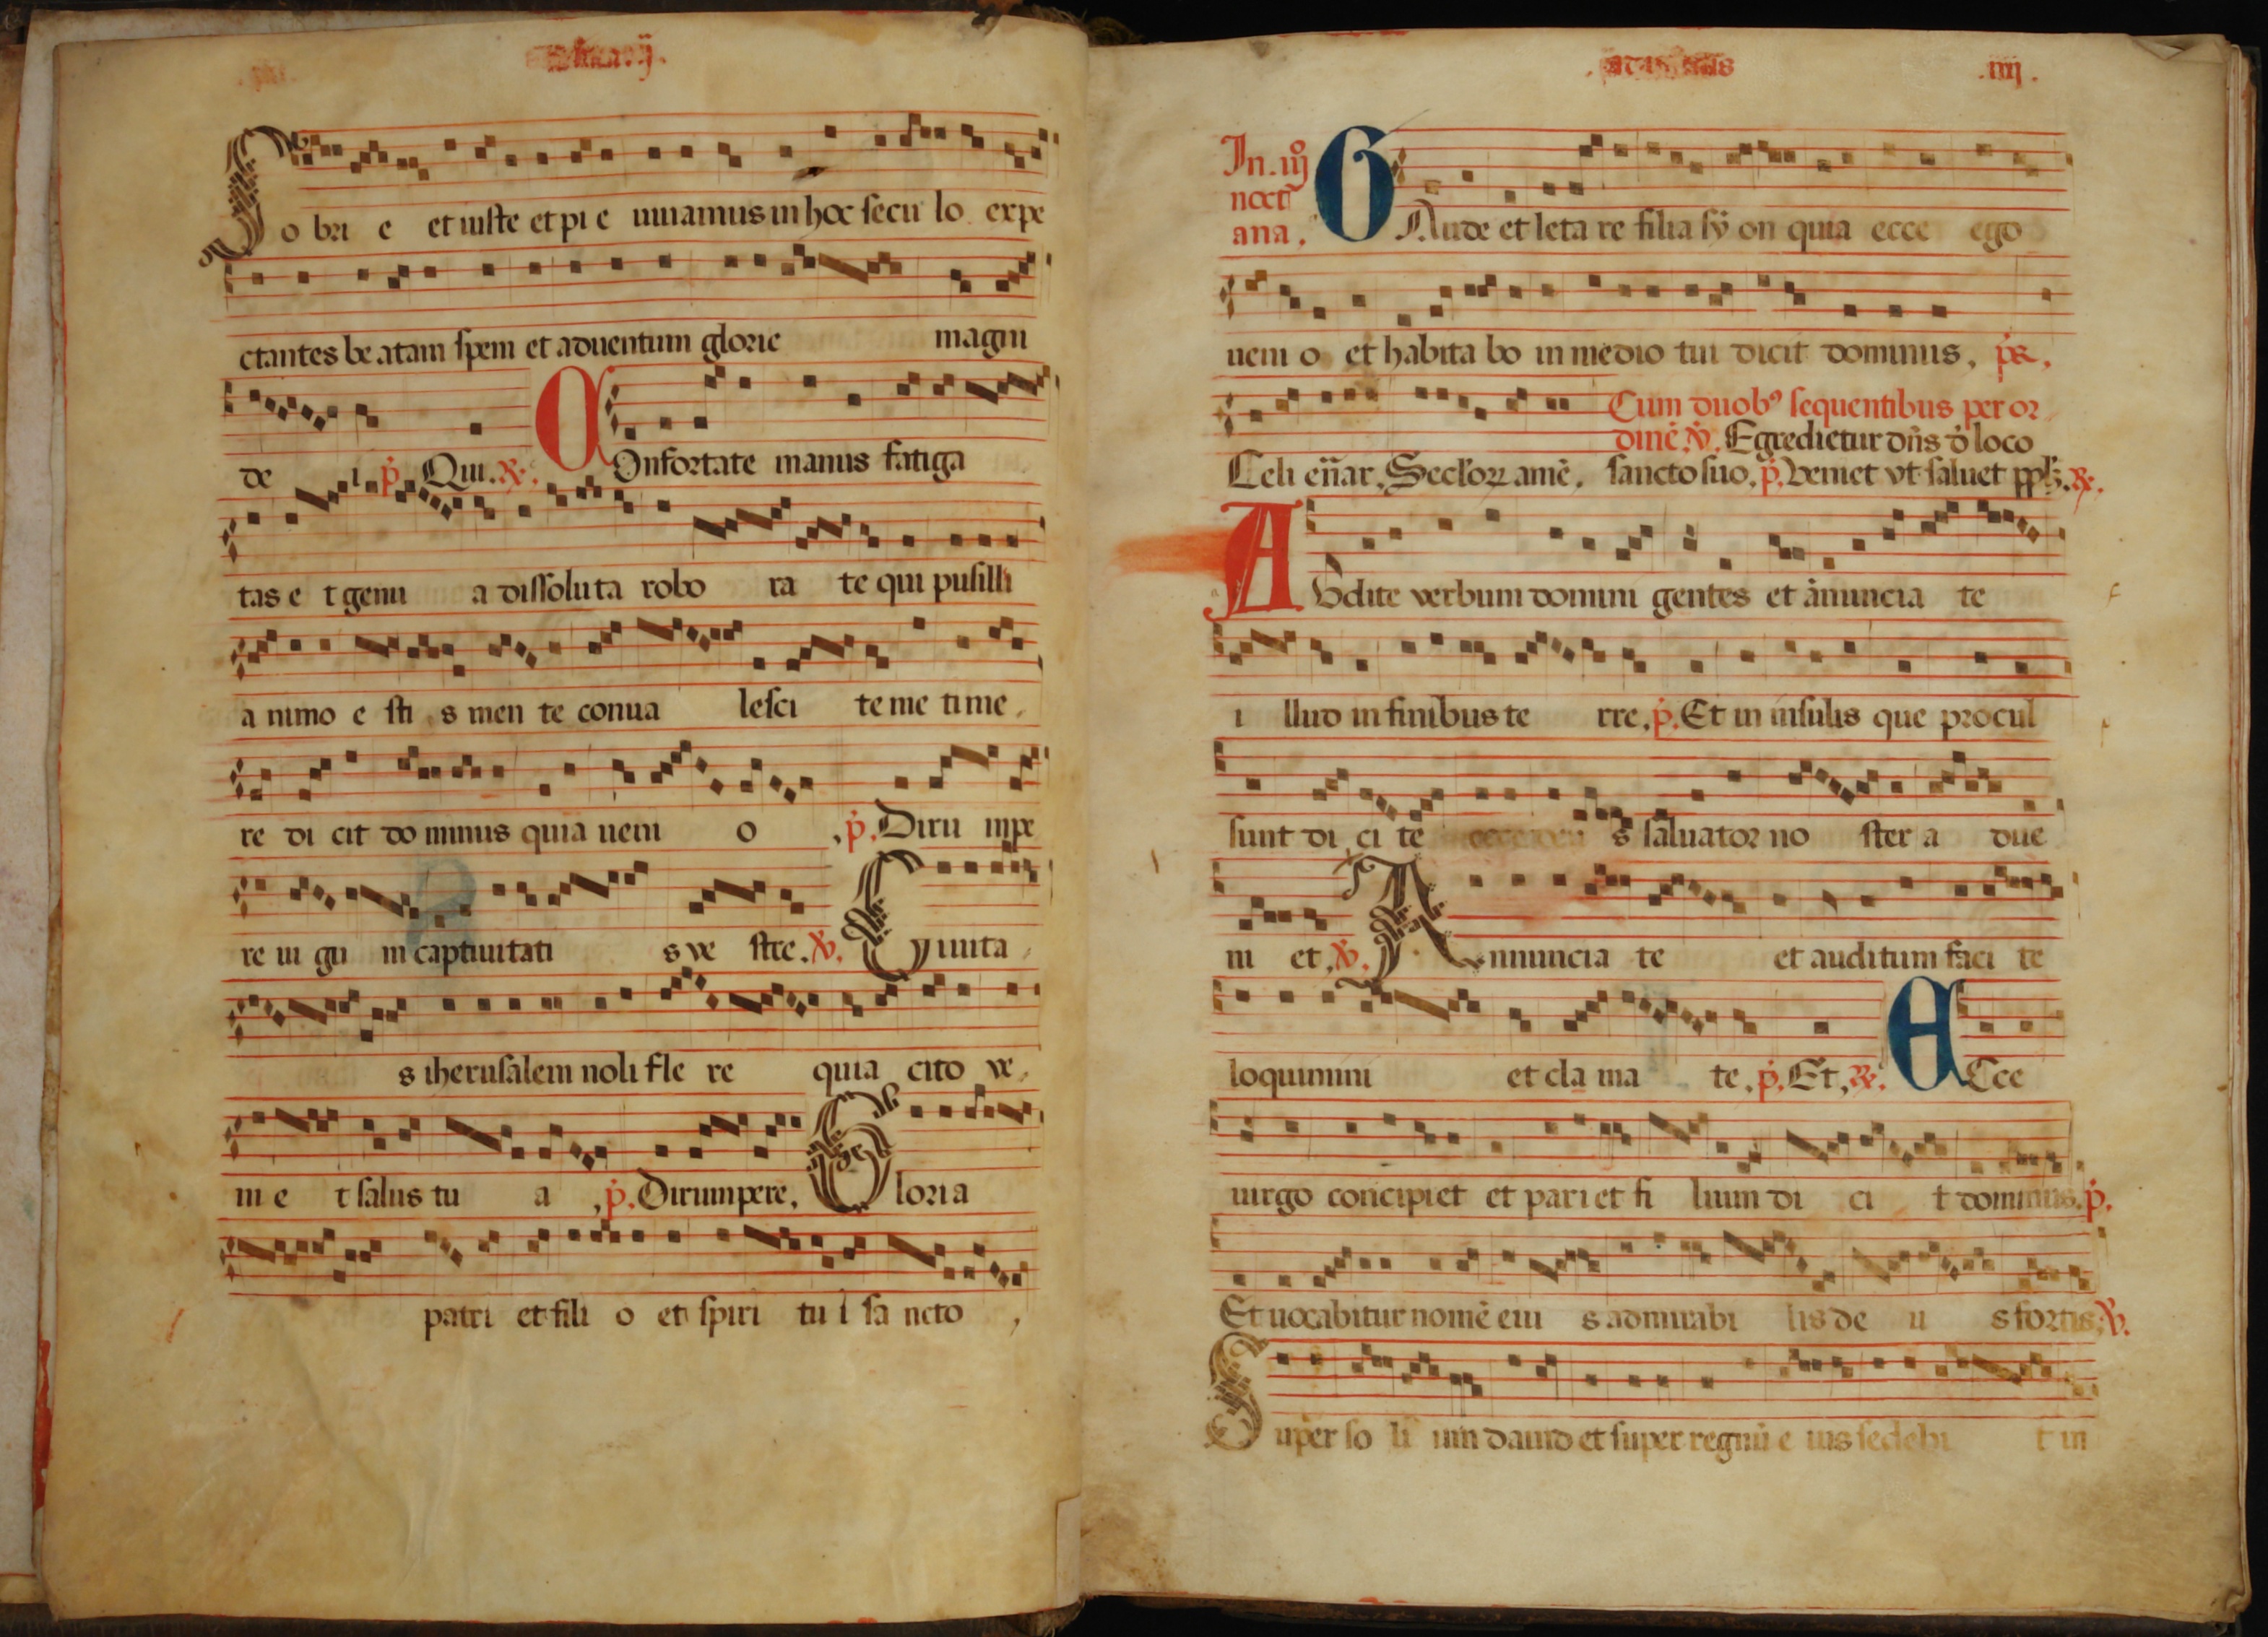 So bri e et iuste et pi e uiuamus in hoc secu lo expe
ctantes be atam spem et aduentum glorie magni
de i. p. Qui. R.
COnfortate manus fatiga
tas e t genu a dissolu ta robo ra te qui pusilli
a nimo e sti s men te conua lesci te me time
re di cit do minus quia ueni o .p. Diru mpe
re iu gu m captiuitati s ve stre. V. Cyuita
s iherusalem noli fle re quia cito ve
ni e t salus tu a .p. Dirumpere. Gloria
patri et fili o et spiri tu i sa ncto
.iiij.
In .iij.o
noct
ana.
GAude et leta re filia sy on quia ecce ego
ueni o et habita bo in medio tui dicit dominus. ps.
Cum duob9 sequentibus per or
dinē. V. Egredietur dn̄s d̄ loco
Celi en̄ar. Seclōꝝ amē. sancto suo. p. Veniet vt saluet pplm̄. R.
AVdite verbum domini gentes et annuncia te
i llud in finibus te rre. p. Et in insulis que procul
sunt di ci te s saluator no ster a due
ni et. V. Annuncia te et auditum faci te
loquimini et cla ma te. p. Et. R. ECce
uirgo concipiet et pari et fi lium di ci t dominus. p.
Et uocabitur nomē eiu s admirabi lis de u s fortis. V.
Super so li um dauid et super regnū e ius sedebi t in